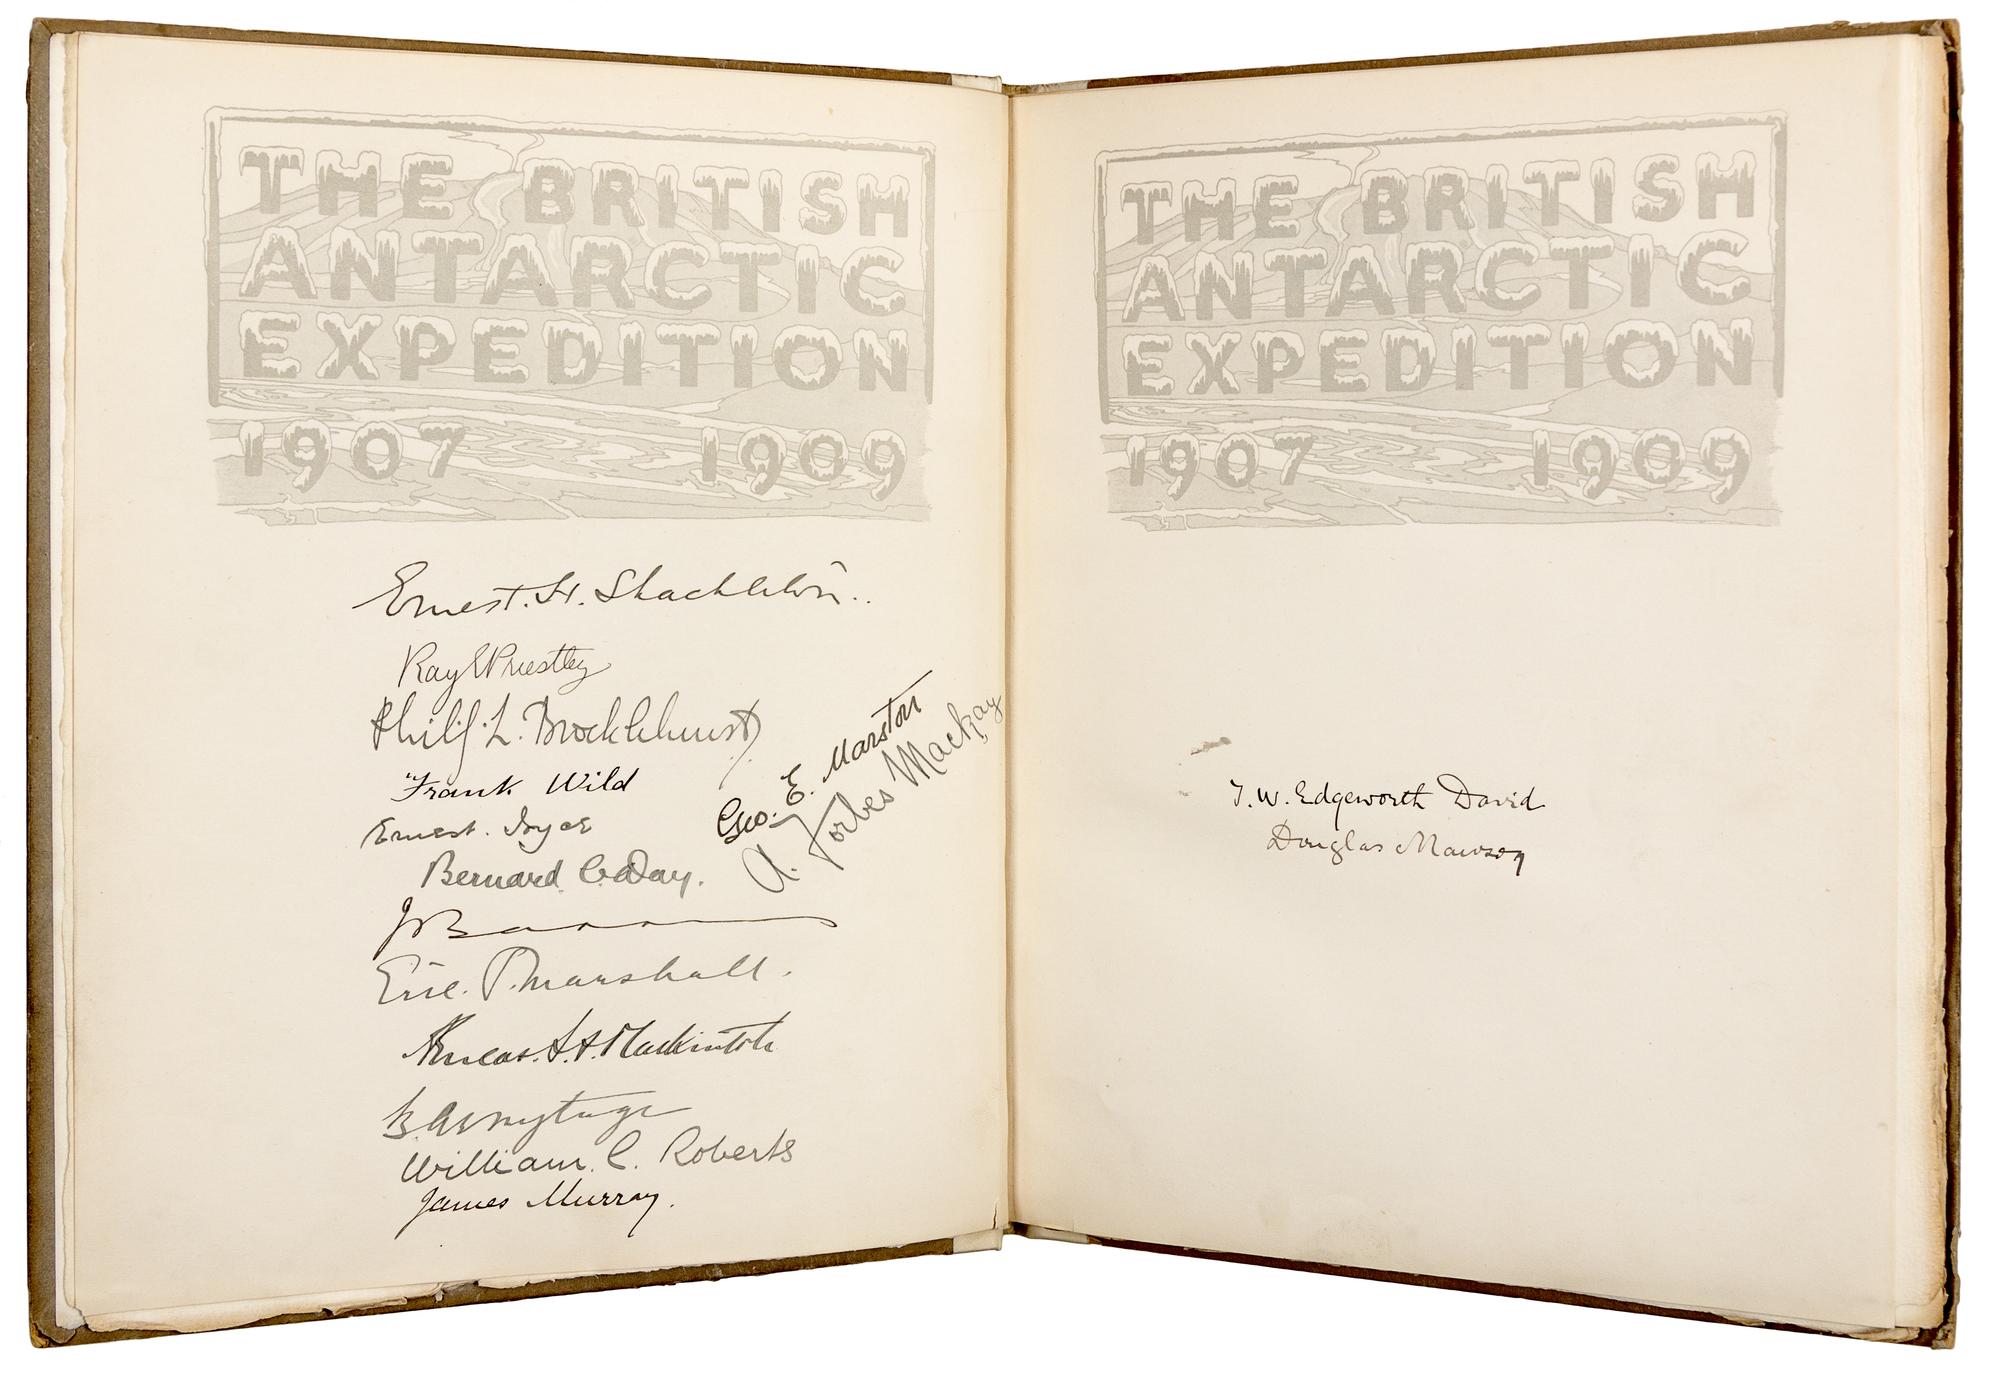 THE BRITISH
ANTARCTIC
EXPEDITION
1907 1909
Ernest. H. Shackleton..
Ray E Priestley
Philip. L. Brocklehurst
Frank Wild
Ernest. Joyce
Bernard. C. Day.
Geo. E. Marston
A. Forbes Mackay
J B
Eric. P. Marshall.
Aeneas. L. A. Mackintosh
B. Armytage
William. C. Roberts
James Murray.
THE BRITISH
ANTARCTIC
EXPEDITION
1907 1909
T. W. Edgeworth David
Douglas Mawson